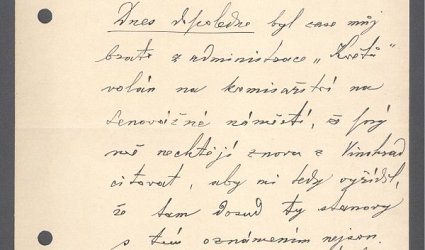 Dnes dopoledne byl zase můj
bratr z administrace „Květů"
volán na komisařství na
Senovážné náměstí, že prý
mě nechtějí znova z Vinohrad
citovat, aby mi tedy vyřídil,
že tam dosud ty stanovy
s tím oznámením nejsou.